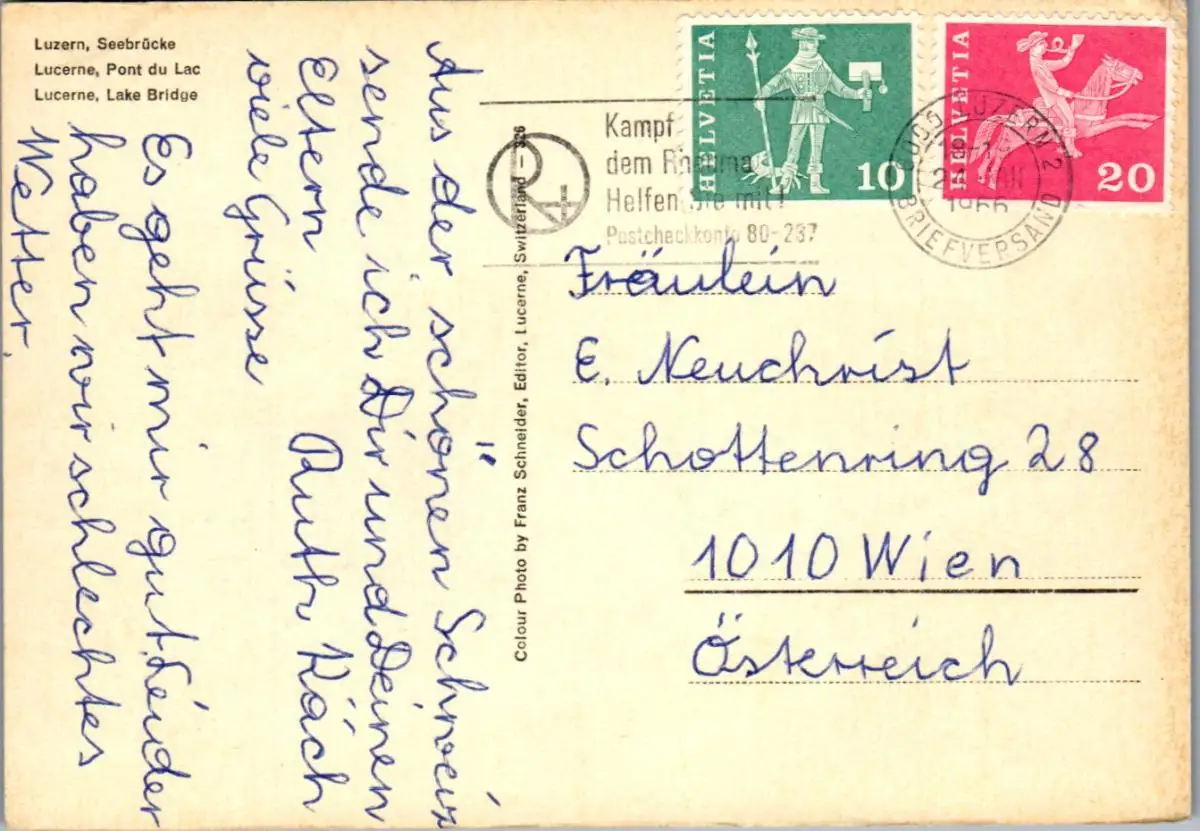 Luzern, Seebrücke
Lucerne, Pont du Lac
Lucerne, Lake Bridge
Aus der schönen Schweiz
sende ich Dir und Deinen
Eltern
viele Grüsse
Ruth Käch
Es geht mir gut. Leider
haben wir schlechtes
Wetter.
Colour Photo by Franz Schneider, Editor, Lucerne, Switzerland – 326
R+
Kampf
dem Rheuma
Helfen Sie mit!
Postcheckkonto 80-237
HELVETIA
10
HELVETIA
20
LUZERN 2
1966
BRIEFVERSAND
Fräulein
E. Neuchrist
Schottenring 28
1010 Wien
Österreich